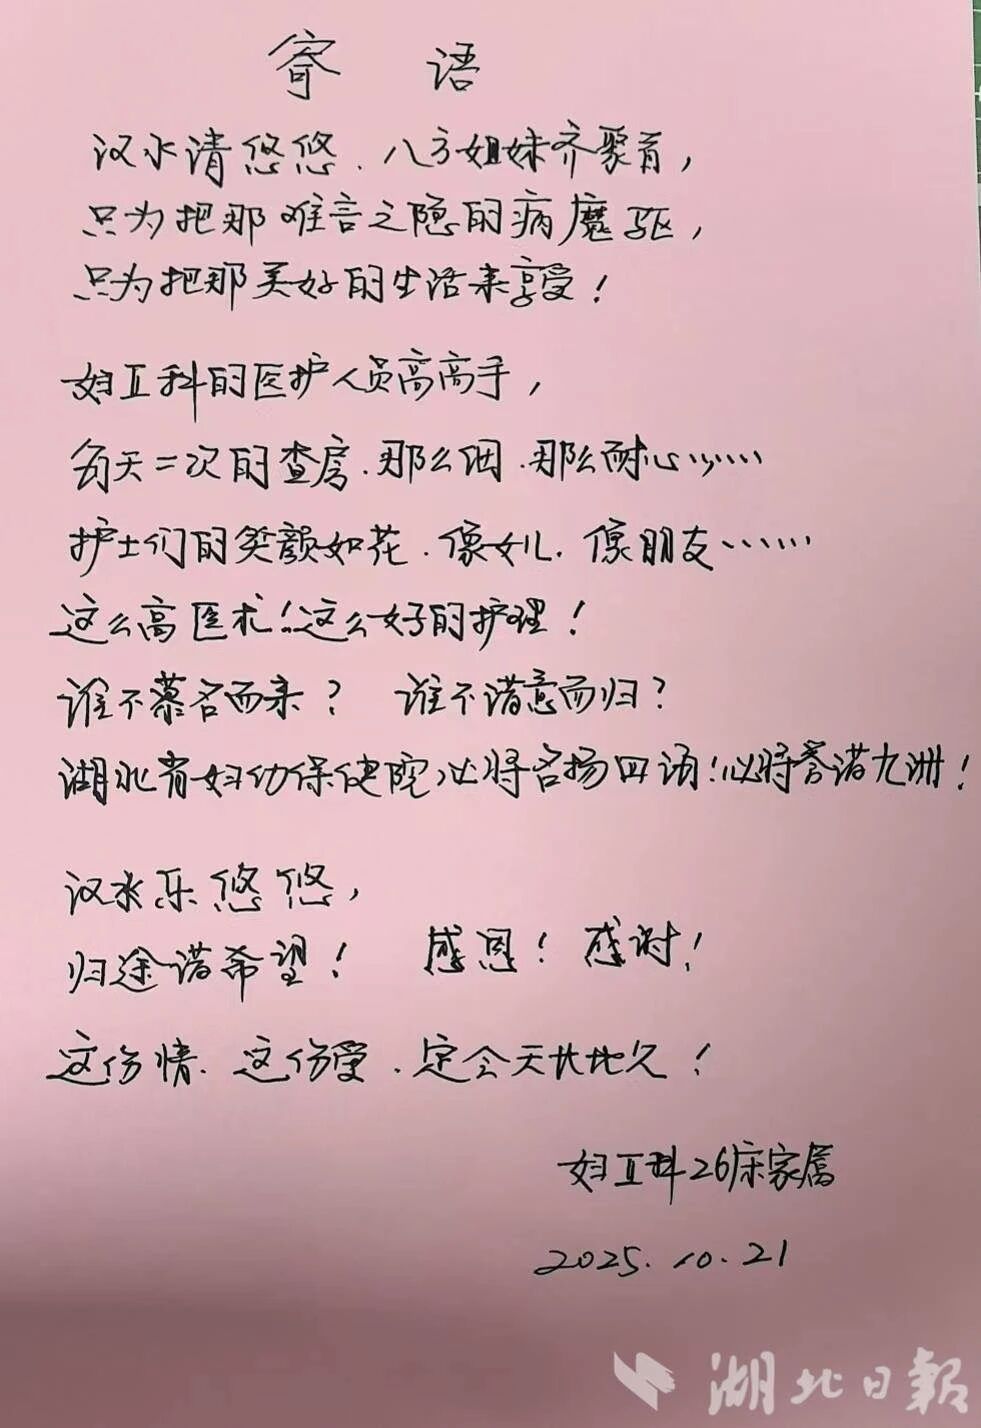 寄语
汉水清悠悠.八方姐妹齐聚首,
只为把那难言之隐的病魔驱,
只为把那美好的生活来享受!
妇Ⅱ科的医护人员高高手,
每天二次的查房.那么细.那么耐心……
护士们的笑颜如花.像女儿.像朋友……
这么高医术!这么好的护理!
谁不慕名而来? 谁不满意而归?
湖北省妇幼保健院必将名扬四海!必将誉满九洲!
汉水乐悠悠,
归途满希望! 感恩! 感谢!
这份情.这份爱.定会天长地久!
妇Ⅱ科26床家属
2025.10.21
湖北日报